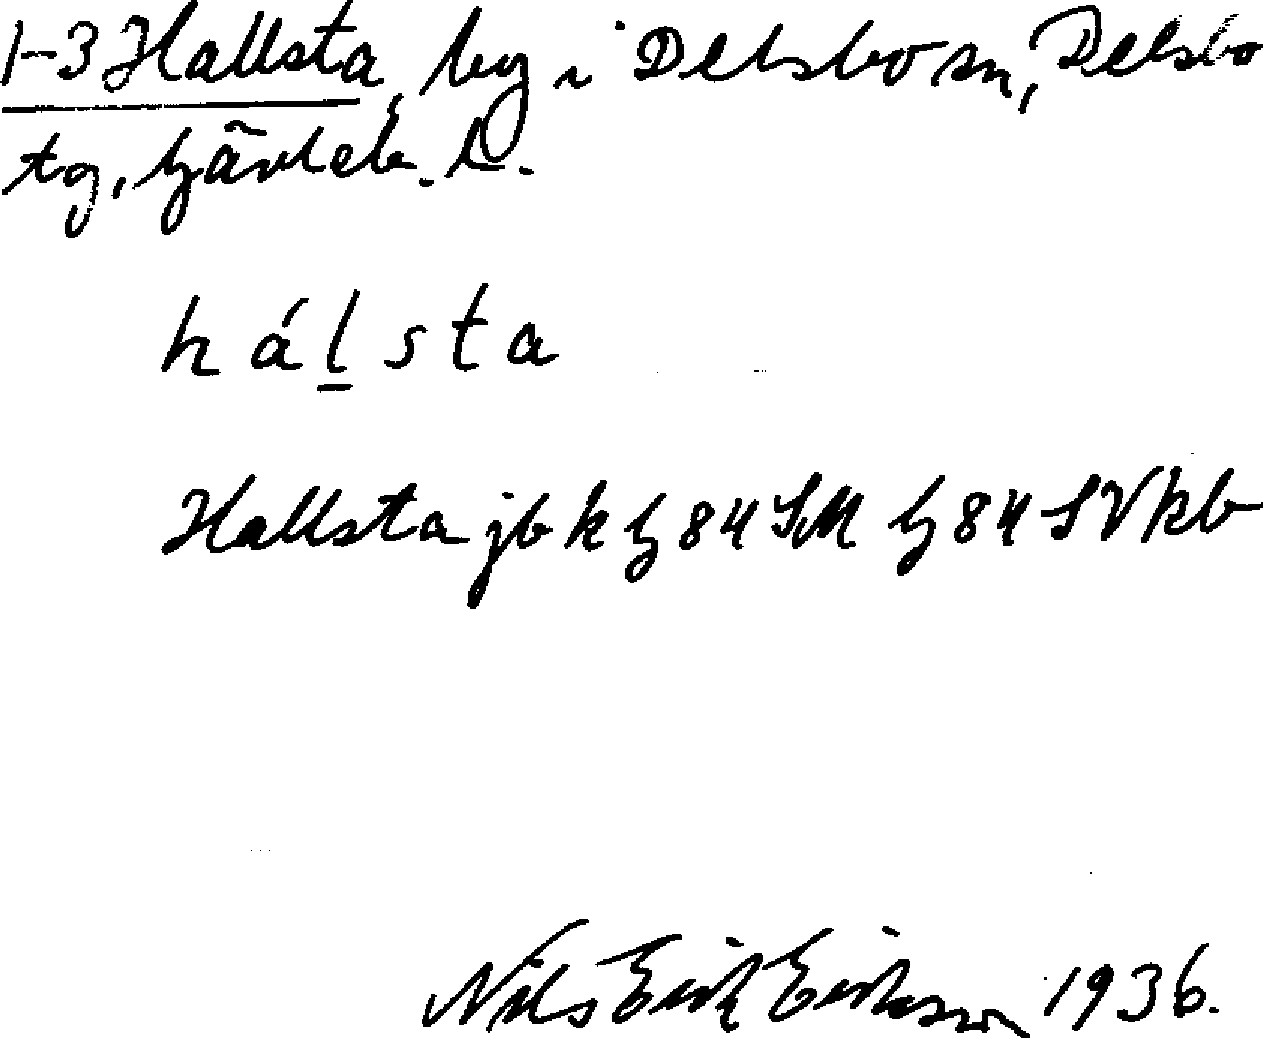 1-3 Hallsta, by i Delsbo sn, Delsbo
tg, Gävleb. l.
hálsta
Hallsta jb k g 84 SM g 84 SV kb
Nils Erik Eriksson 1936.